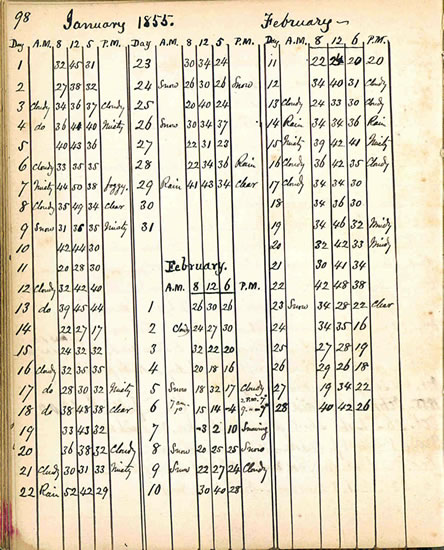 98 January 1855. February
Day A.M. 8 12 5 P.M.
1 32 45 31
2 27 38 32
3 Cloudy 34 36 37 Cloudy
4 do 36 44 40 Misty
5 40 43 36
6 Cloudy 33 35 35
7 Misty 44 50 38 foggy.
8 Cloudy 35 49 34 Clear
9 Snow 31 36 35 Misty
10 42 44 30
11 20 28 30
12 Cloudy 32 42 40
13 do 39 45 44
14 22 27 17
15 24 32 32
16 Cloudy 32 35 35
17 do 28 30 32 Misty
18 do 38 48 38 Clear
19 33 43 32
20 36 38 32 Cloudy
21 Cloudy 30 31 33 Misty
22 Rain 52 42 29
Day A.M. 8 12 5 P.M.
23 30 34 24
24 Snow 26 30 26 Snow
25 20 40 24
26 Snow 30 34 37
27 22 31 23
28 22 34 36 Rain
29 Rain 41 43 34 Clear
30
31
February.
A.M. 8 12 6 P.M.
1 26 30 26
2 Cloudy 24 27 30
3 32 22 20
4 20 18 16
5 Snow 18 32 17 Cloudy
6 7 a.m. 15 14 -4
7 -3 2 10 Snowing
8 Snow 20 25 25 Snow
9 Snow 22 27 24 Cloudy
10 30 40 28
Day A.M. 8 12 6 P.M.
11 22 24 20 20
12 34 40 31 Cloudy
13 Cloudy 24 33 30 Cloudy
14 Rain 34 34 40 Rain
15 Misty 39 42 41 Misty
16 Cloudy 36 42 35 Cloudy
17 Cloudy 34 34 30
18 34 36 30
19 34 46 32 Windy
20 32 42 33 Windy
21 30 41 34
22 42 48 38
23 Snow 34 28 22 Clear
24 34 35 16
25 27 28 19
26 29 26 18
27 19 34 22
28 40 42 26